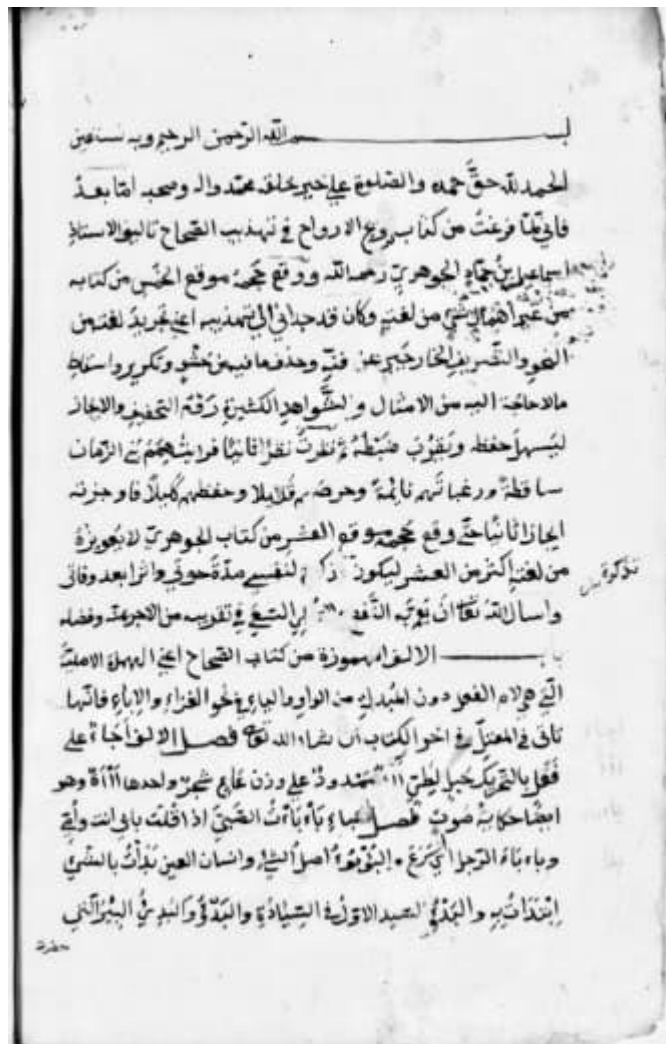 بسم الله الرحمن الرحيم وبه نستعين
الحمد لله حقَّ حمده والصلوة على خير خلقه محمد واله وصحبه امّا بعد
فانى لمّا فرغتُ من كتاب ترويح الارواح فى تهذيب الصحاح تاليف الاستاذ
اسماعيل بن حمّاد الجوهرىّ رحمه الله ووقع حجمهُ موقع الخمس من كتابه
من غير اهمال شىء من لغته وكان قد حدانى الى تهذيبه اعنى تجريد لغته من
النحو والتصريف الخارجين عن فنّه وحذف ما فيه من حشو وتكرير واسقاط
مالا حاجة اليه من الامثال والشواهد الكثيرة رقّة التخفيف والايجاز
ليسهل حفظه ويقرُب ضبطُهُ ثم نظرتُ نظرًا ثانيًا فرايت همم بنى الزمان
ساقطةً ورغباتهم نائمةً وحرصهم قليلا وحفظهم كليلًا فاوجزته
ايجازا ثانيا حتى وقع حجمه موقع العشر من كتاب الجوهرىّ لا يعوزهُ
من لغته اكثر من العشر ليكون تذكرة لنفسى مدّةَ حيوتى واثرا بعد وفاتى
تذكرة
واسال الله تعالى ان يوتيه النفع
باب الالف المهموزة من كتاب الصحاح اعنى الهمزة الاصليّة
الّتى هى لام الفعل دون المبدلة من الواو والياء فى نحو العزاء والاباء فانّها
تاتى فى المعتلّ فى اخر الكتاب ان شاء الله تعالى فصل الالف اجأ على
فَعَل بالتحريك جبل لطىّ ااءٌ ممدودٌ على وزن عاع شجرٌ واحدها ااءة وهو
ايضا حكاية صوت فصل الباء بأبأتُ الصبىّ اذا قلت بابى انت وأمّى
وبأبأ الرجل اى اسرع والبؤبؤ اصل الشىء وانسان العين بدأتُ بالشىء
ابتدأت به والبدء السيد الاول فى السيادة والبدْءُ والبدىءُ البئر الّتى
حفرت